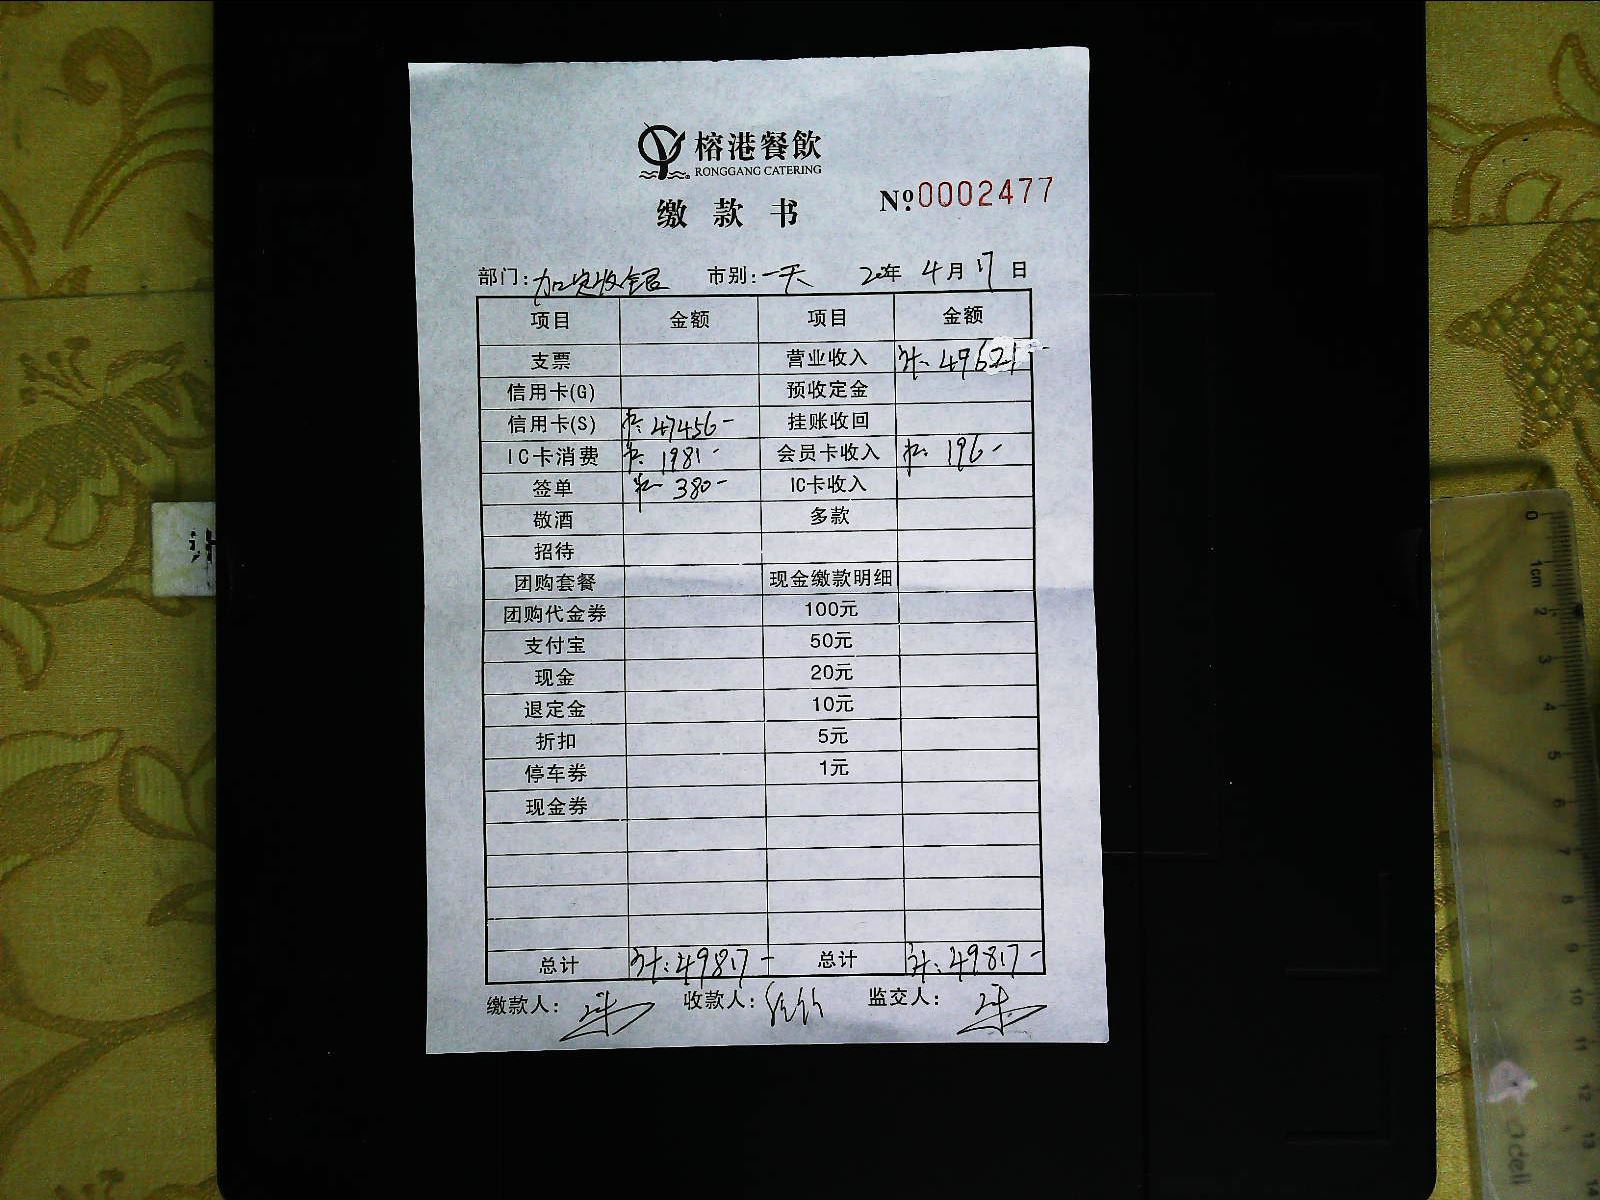 榕港餐飲
RONGGANG CATERING
缴款书 №0002477
部门: 市别:一天 20年 4月17日
项目 金额 项目 金额
支票 营业收入 计: 49621-
信用卡(G) 预收定金
信用卡(S) 47456- 挂账收回
IC卡消费 1981- 会员卡收入 196-
签单 380- IC卡收入
敬酒 多款
招待
团购套餐 现金缴款明细
团购代金券 100元
支付宝 50元
现金 20元
退定金 10元
折扣 5元
停车券 1元
现金券
总计 计:49817- 总计 计:49817-
缴款人: 收款人: 监交人:
0
1cm
2
3
4
5
6
7
8
9
10
11
12
13
deli